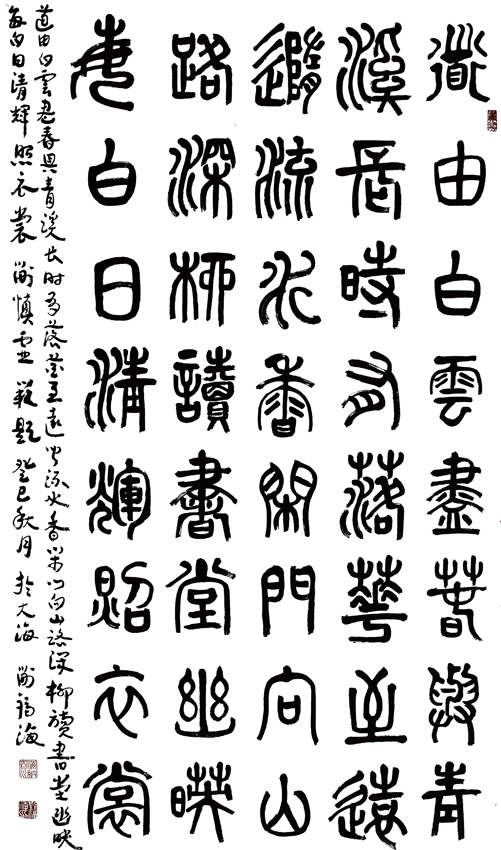 道由白雲盡春與青
溪長時有落華至遠
隨流水香閑門向山
路深柳讀書堂幽暎
每白日清輝照衣裳
道由白雲尽春與青溪长时有落華至遠隨流水香閑門向山路深柳讀書堂幽映
每白日清輝照衣裳 劉慎虚 闕題 癸巳秋月於大海 劉福海